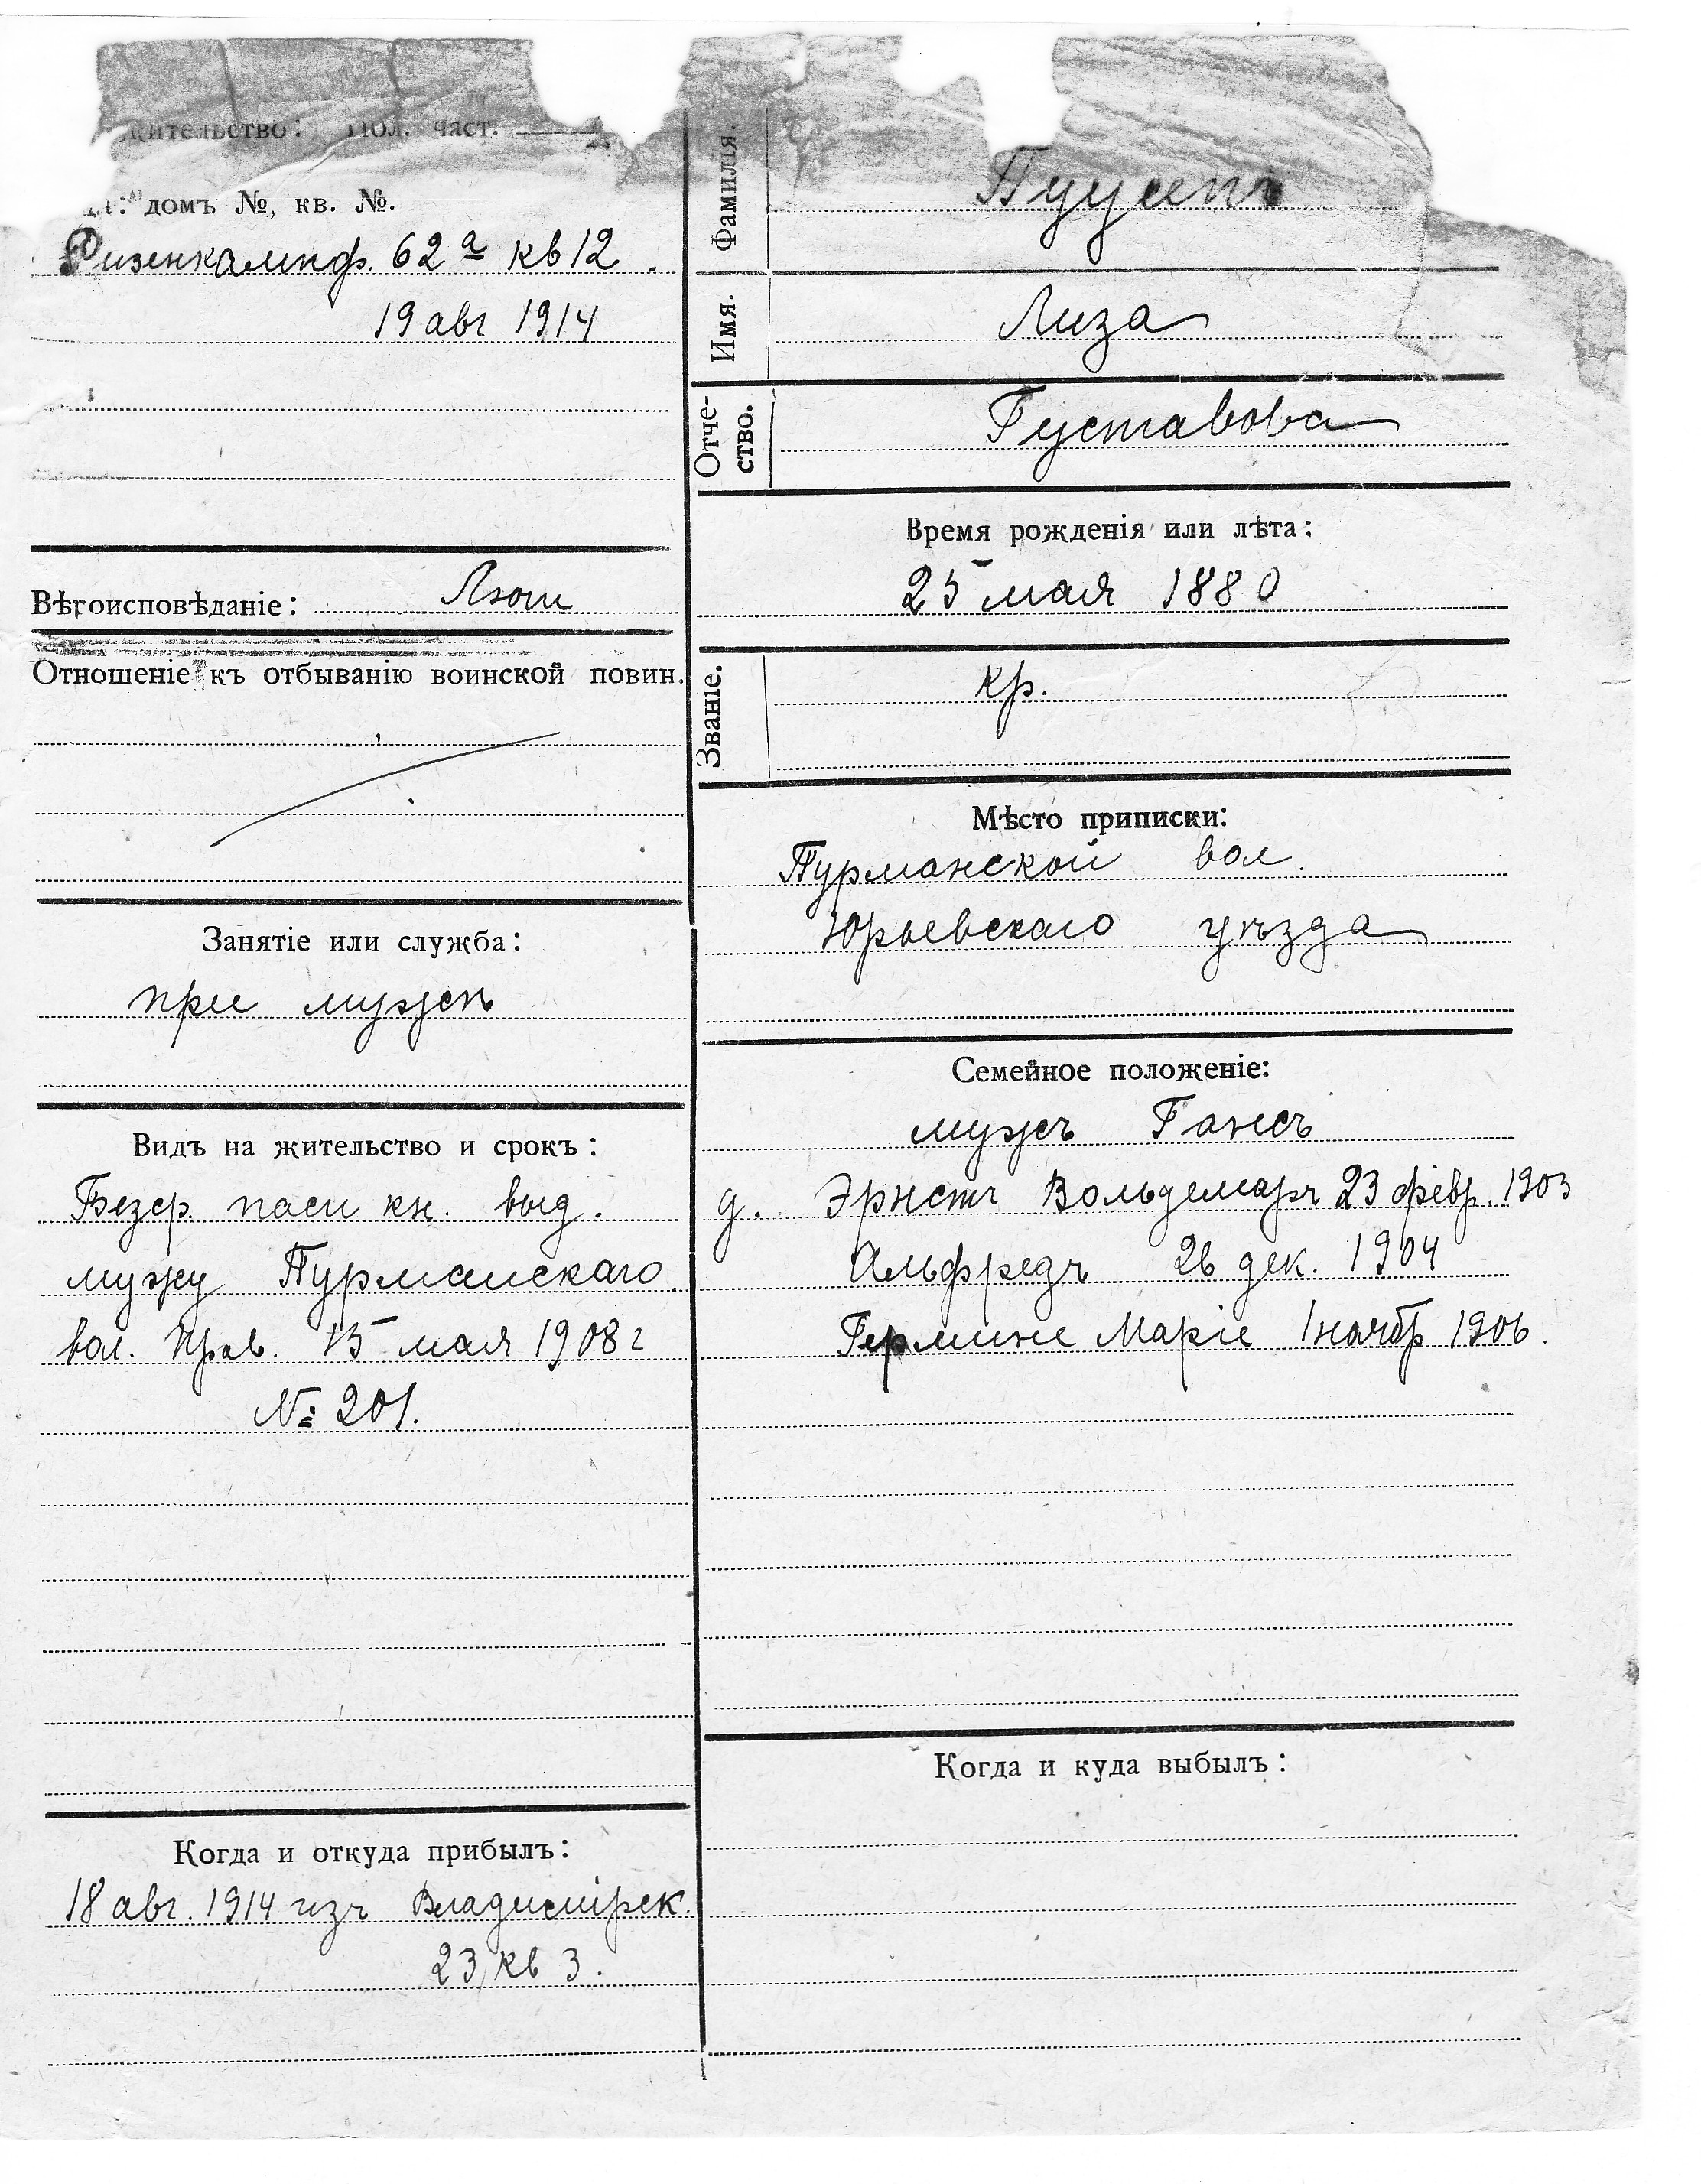 жительство: Пол. част.
домъ №, кв. №.
Ризенкампф. 62а кв 12.
19 авг 1914
Вѣроисповѣданіе: Лют
Отношеніе къ отбыванію воинской повин.
Занятіе или служба:
при мужѣ
Видъ на жительство и срокъ:
Безср. пасп кн. выд.
мужу Пурманскаго
вол. Прав. 15 мая 1908 г
№ 201.
Когда и откуда прибылъ:
18 авг. 1914 изъ Владимірск
23, кв 3.
Фамилія.
Имя. Лиза
Отче-
ство. Густавова
Время рожденія или лѣта:
25 мая 1880
Званіе. кр.
Мѣсто приписки:
Пурманской вол.
Юрьевскаго уѣзда
Семейное положеніе:
мужъ Гансъ
д. Эрнстъ Вольдемаръ 23 февр. 1903
Альфредъ 26 дек. 1904
Гермине Маріе 1 ноябр 1906.
Когда и куда выбылъ: